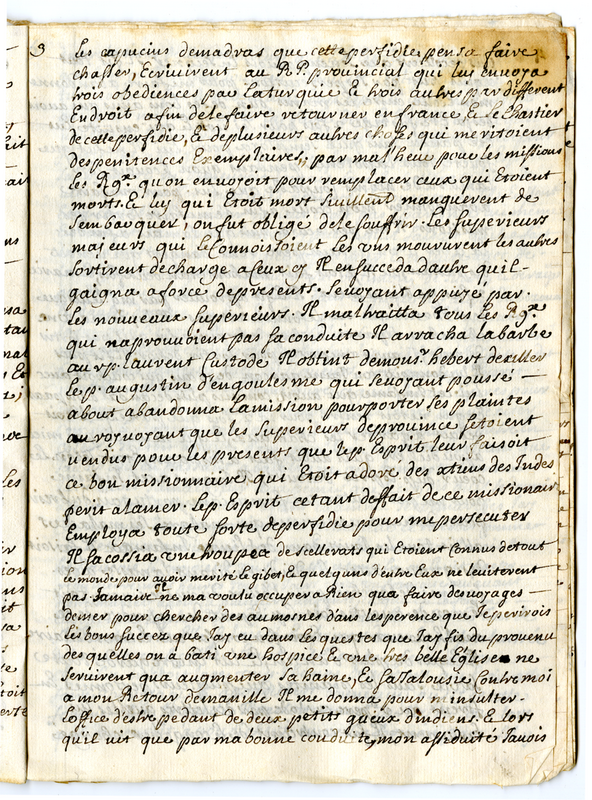 3
les capucins demadras que cette perfidie pensa faire
chasser, Ecrivirent au R.P. provincial qui luy envoya
trois obediences par la turquie & trois autres par different
Endroit afin de le faire retourner en france & le Chastier
de cette perfidie, & deplusieurs autres choses qui meritoient
des penitences Exemplaires,, par malheur pour les missions
les Rgx quon envoyoit pour remplacer ceux qui Etoient
morts. & luy qui Etoit mort manquerent de
sembarquer, on fut obligé dele souffrir. Les superieurs
majeurs qui leconnoissoient les uns moururent les autres
sortirent decharge a ceux cy Il en succeda dautre quil-
gaigna aforce depresents. Sevoyant appuyé par.
les nouveaux superieurs. Il maltraitta tous les Rgx
qui naprouvoient pas sa conduite Il arracha labarbe
au rp. laurent Custode Il obtint demonsr. hebert dexiller
le p. augustin d'engoulesme qui sevoyant poussé -
about abandonna lamission pourporter ses plaintes
au roy voyant que les superieurs deprovince setoient
vendus pour les presents que lep. Esprit leur faisoit
ce bon missionnaire qui Etoit adore des xtiens des Indes
perit alamer. lep. Esprit cetant deffait de ce missionaire
Employa toute sorte deperfidie pour me persecuter
Il sacossia une troupe de scellerats qui Etoient Connus detout
le monde pour avoir merité le gibet, & quelquns d'entre Eux ne leviterent
pas. Jamais Il ne ma voulu occuper a Rien qua faire des voyages -
demer pour chercher des aumosnes dans lesperence que Jeperirois
les bons succez que Jay eu dans les questes que Jay fis du provenu
des quelles on a bati une hospice & une tres belle Eglise ne
servirent qua augmenter sa haine, & sa Jalousie Contre moi
a mon Retour demanille Il me donna pour minsulter-
Loffice d'estre pedant de deux petits gueux d'indiens. & lors
qu'il vit que par ma bonne conduite, mon assiduité Javois